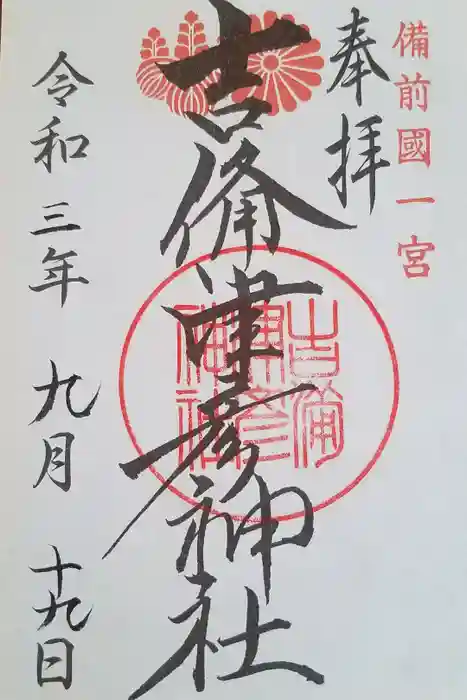 備前國一宮
奉拝
吉備津彦神社
吉備
津彦
神社
令和三年 九月 十九日